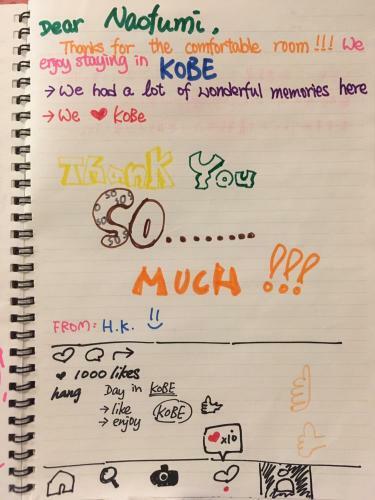 Dear Naofumi,
Thanks for the comfortable room!!! We
enjoy staying in KOBE
→ We had a lot of wonderful memories here
→ We ❤ Kobe
Thank You
SO........
MUCH !!!
FROM: H.K.
❤ 1000 likes
hang Day in KOBE
→ like KOBE
→ enjoy
❤x10